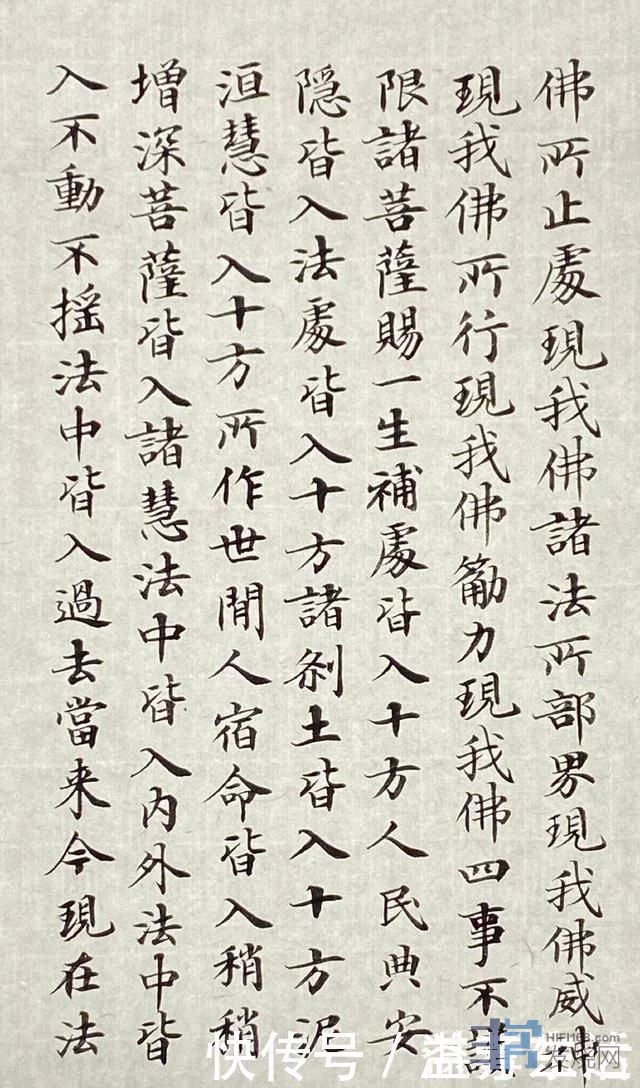 佛所止處現我佛諸法所部界現我佛威神
現我佛所行現我佛䈥力現我佛四事不
限諸菩薩賜一生補處皆入十方人民典安
隐皆入法處皆入十方諸刹土皆入十方泥
洹慧皆入十方所作世間人宿命皆入稍稍
增深菩薩皆入諸慧法中皆入内外法中皆
入不動不摇法中皆入過去當来今現在法
快传号 /
HIFI168.com
发烧网